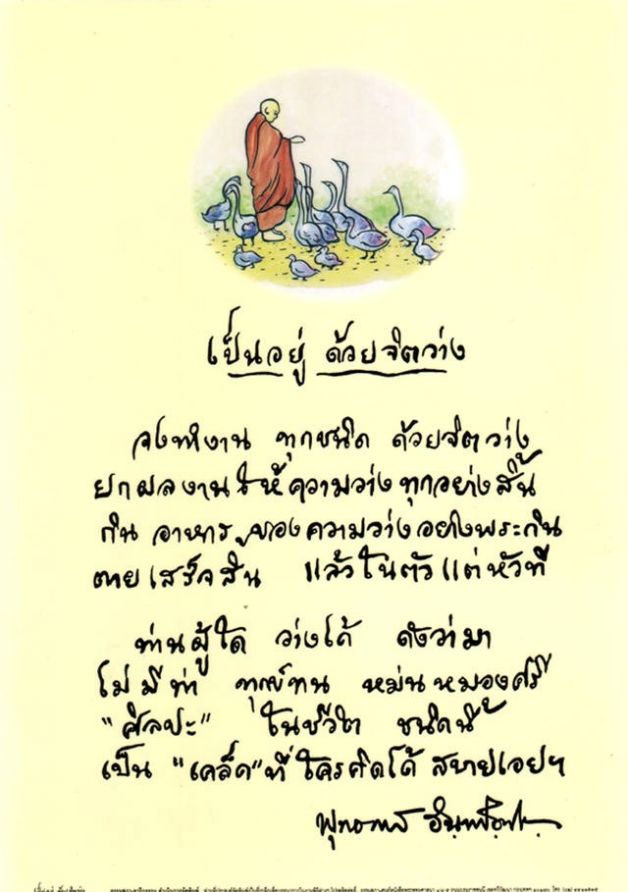 เป็นอยู่ ด้วยจิตว่าง
จงทำงาน ทุกชนิด ด้วยจิตว่าง
ยกผลงานให้ความว่างทุกอย่างสิ้น
กิน อาหาร ของความว่างอย่างพระกิน
ตายเสร็จสิ้น แล้วในตัวแต่หัวที
ท่านผู้ใด ว่างได้ ดังว่ามา
ไม่มีท่า ทุกข์ทน หม่นหมองศรี
"ศิลปะ" ในชีวิต ชนิดนี้
เป็น "เคล็ด" ที่ใครคิดได้ สบายเอยฯ
พุทธทาส อินทปัญโญ